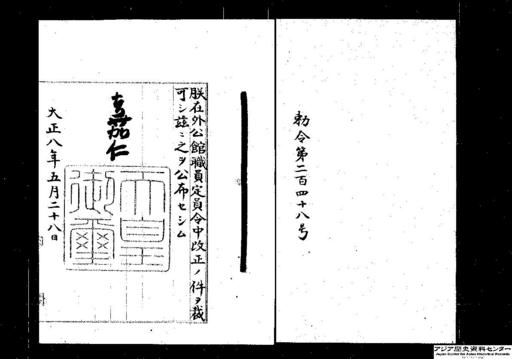 勅令第二百四十八号
朕在外公館職員定員令中改正ノ件ヲ裁
可シ茲ニ之ヲ公布セシム
嘉仁
天皇
御璽
大正八年五月二十八日
アジア歴史資料センター
Japan Center for Asian Historical Records